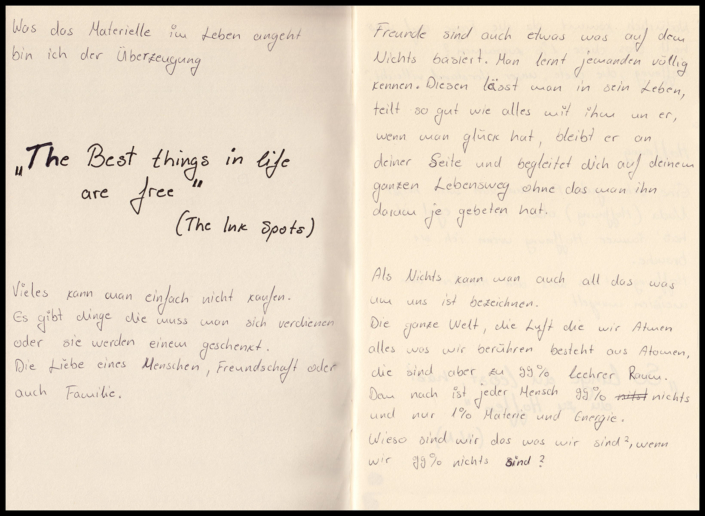 Was das Materielle im Leben angeht
bin ich der Überzeugung
„The Best things in life
are free"
(The Ink Spots)
Vieles kann man einfach nicht kaufen.
Es gibt dinge die muss man sich verdienen
oder sie werden einem geschenkt.
Die Liebe eines Menschen, Freundschaft oder
auch Familie.
Freunde sind auch etwas was auf dem
Nichts basiert. Man lernt jemanden völlig
kennen. Diesen lässt man in sein Leben,
teilt so gut wie alles mit ihm un er,
wenn man glück hat, bleibt er an
deiner Seite und begleitet dich auf deinem
ganzen Lebensweg ohne das man ihn
darum je gebeten hat.
Als Nichts kann man auch all das was
um uns ist bezeichnen.
Die ganze Welt, die Luft die wir Atmen
alles was wir berühren besteht aus Atomen,
die sind aber zu 99% leehrer Raum.
Dan nach ist jeder Mensch 99% nichts
und nur 1% Materie und Energie.
Wieso sind wir das was wir sind?, wenn
wir 99% nichts sind?